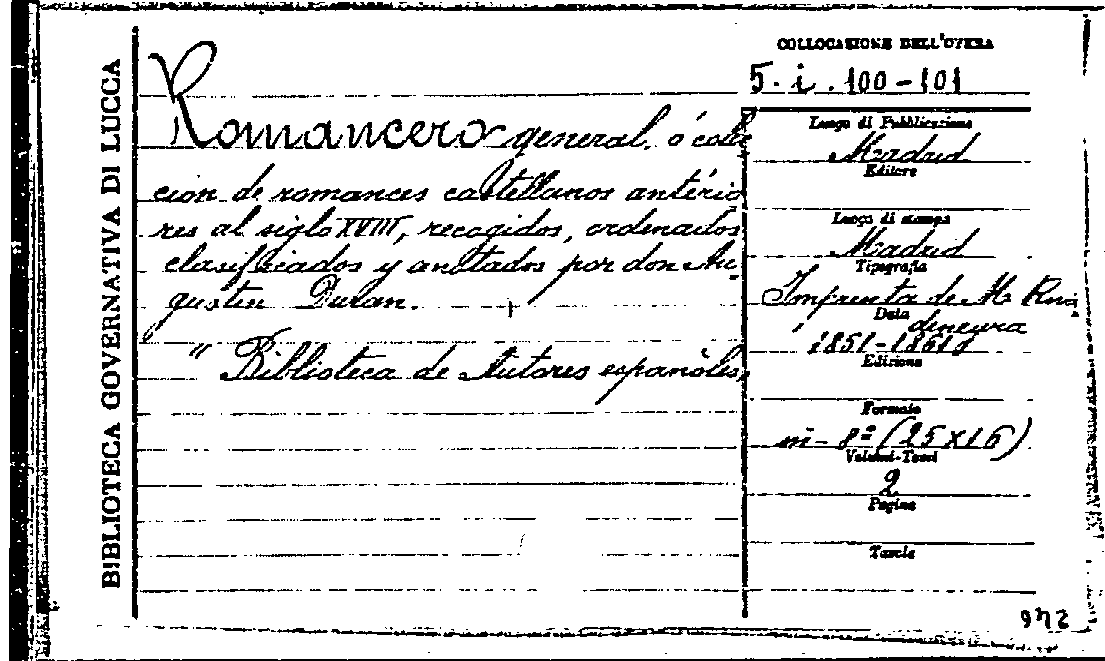 BIBLIOTECA GOVERNATIVA DI LUCCA
COLLOCAZIONE DELL'OPERA
5. i. 100-101
Romancero general, ó colec
cion de romances castellanos anterio
res al siglo XVIII, recogidos, ordenados
clasificados y anotados por don Au-
gustin Duran.
" Biblioteca de Autores españoles,
Luogo di Pubblicazione
Madrid
Editore
Luogo di stampa
Madrid
Tipografia
Imprenta de M. Riva
deneyra
Data
1851-1861
Edizione
Formato
in-8º (25x16)
Volumi-Tomi
2
Pagine
Tavole